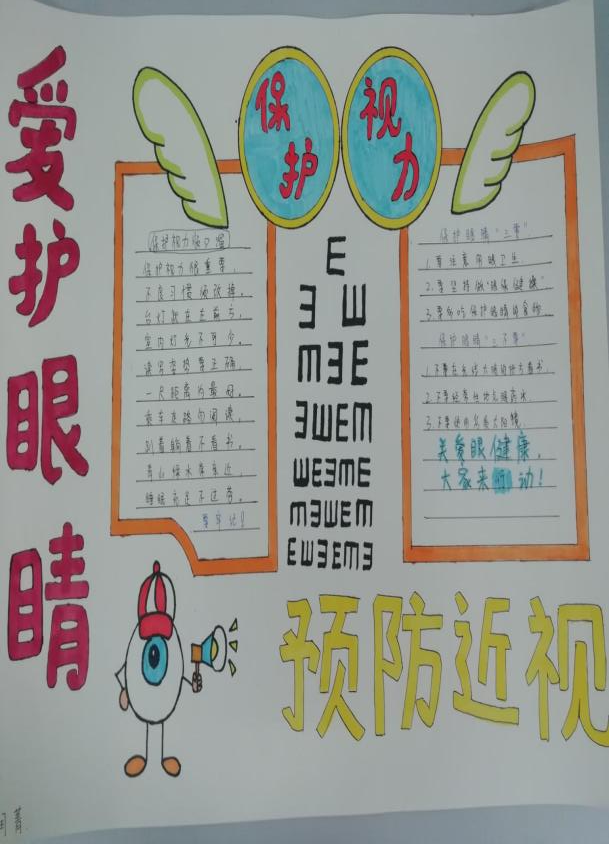 爱护眼睛
保护
视力
保护视力顺口溜
保护视力很重要，
不良习惯须改掉。
台灯放在左前方，
室内灯光不可少。
读写姿势要正确，
一尺距离为最好。
乘车走路勿阅读，
趴着躺着不看书。
青山绿水常亲近，
睡眠充足不过劳。
要牢记！
E
ƎШ
mƎE
ƎШEm
ШEƎmE
mƎШEm
EШƎEmƎ
保护眼睛"三要"
1.要注意用眼卫生
2.要坚持做"眼保健操"
3.要多吃保护眼睛的食物
保护眼睛"三不要"
1.不要在光线太暗的地方看书
2.不要经常给他点眼药水
3.不要使用劣质太阳镜
关爱眼健康，
大家来行动！
预防近视